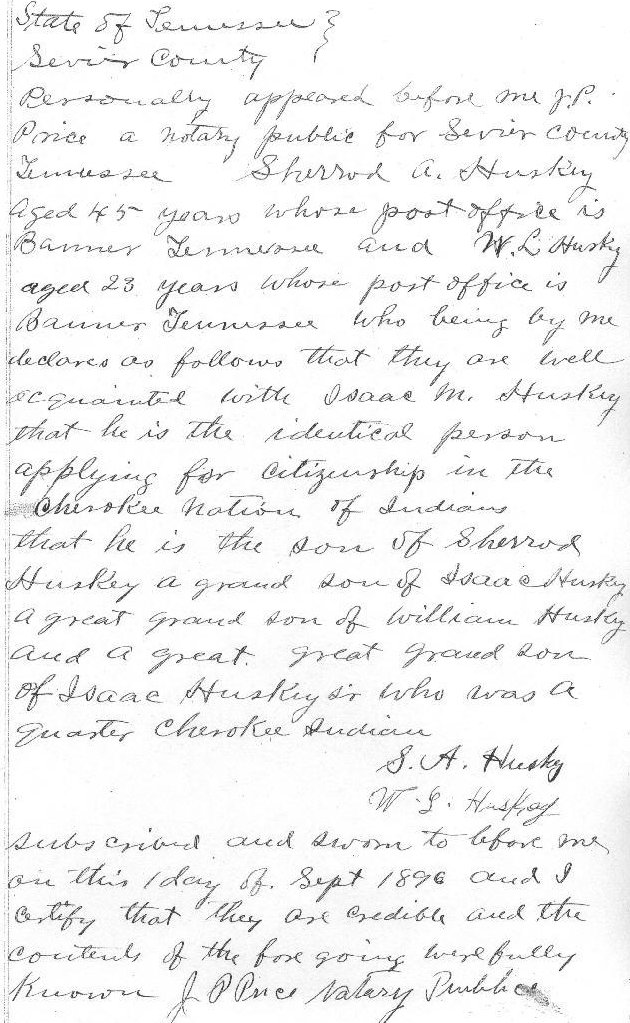 State of Tennessee }
Sevier County
Personally appeared before me J.P.
Price a notary public for Sevier County
Tennessee Sherrod A. Huskey
Aged 45 years whose post office is
Banner Tennessee and W. L. Husky
aged 23 years whose post office is
Banner Tennessee who being by me
declares as follows that they are well
acquainted with Isaac M. Huskey
that he is the identical person
applying for citizenship in the
Cherokee Nation of Indians
that he is the son of Sherrod
Huskey a grand son of Isaac Huskey
a great grand son of William Huskey
and a great. great grand son
of Isaac Huskey sr who was a
quarter Cherokee Indian
S. A. Husky
W. L. Huskey
subscribed and sworn to before me
on this 1 day of. Sept 1896 and I
certify that they are credible and the
contents of the fore going were fully
Known J P Price Notary Public